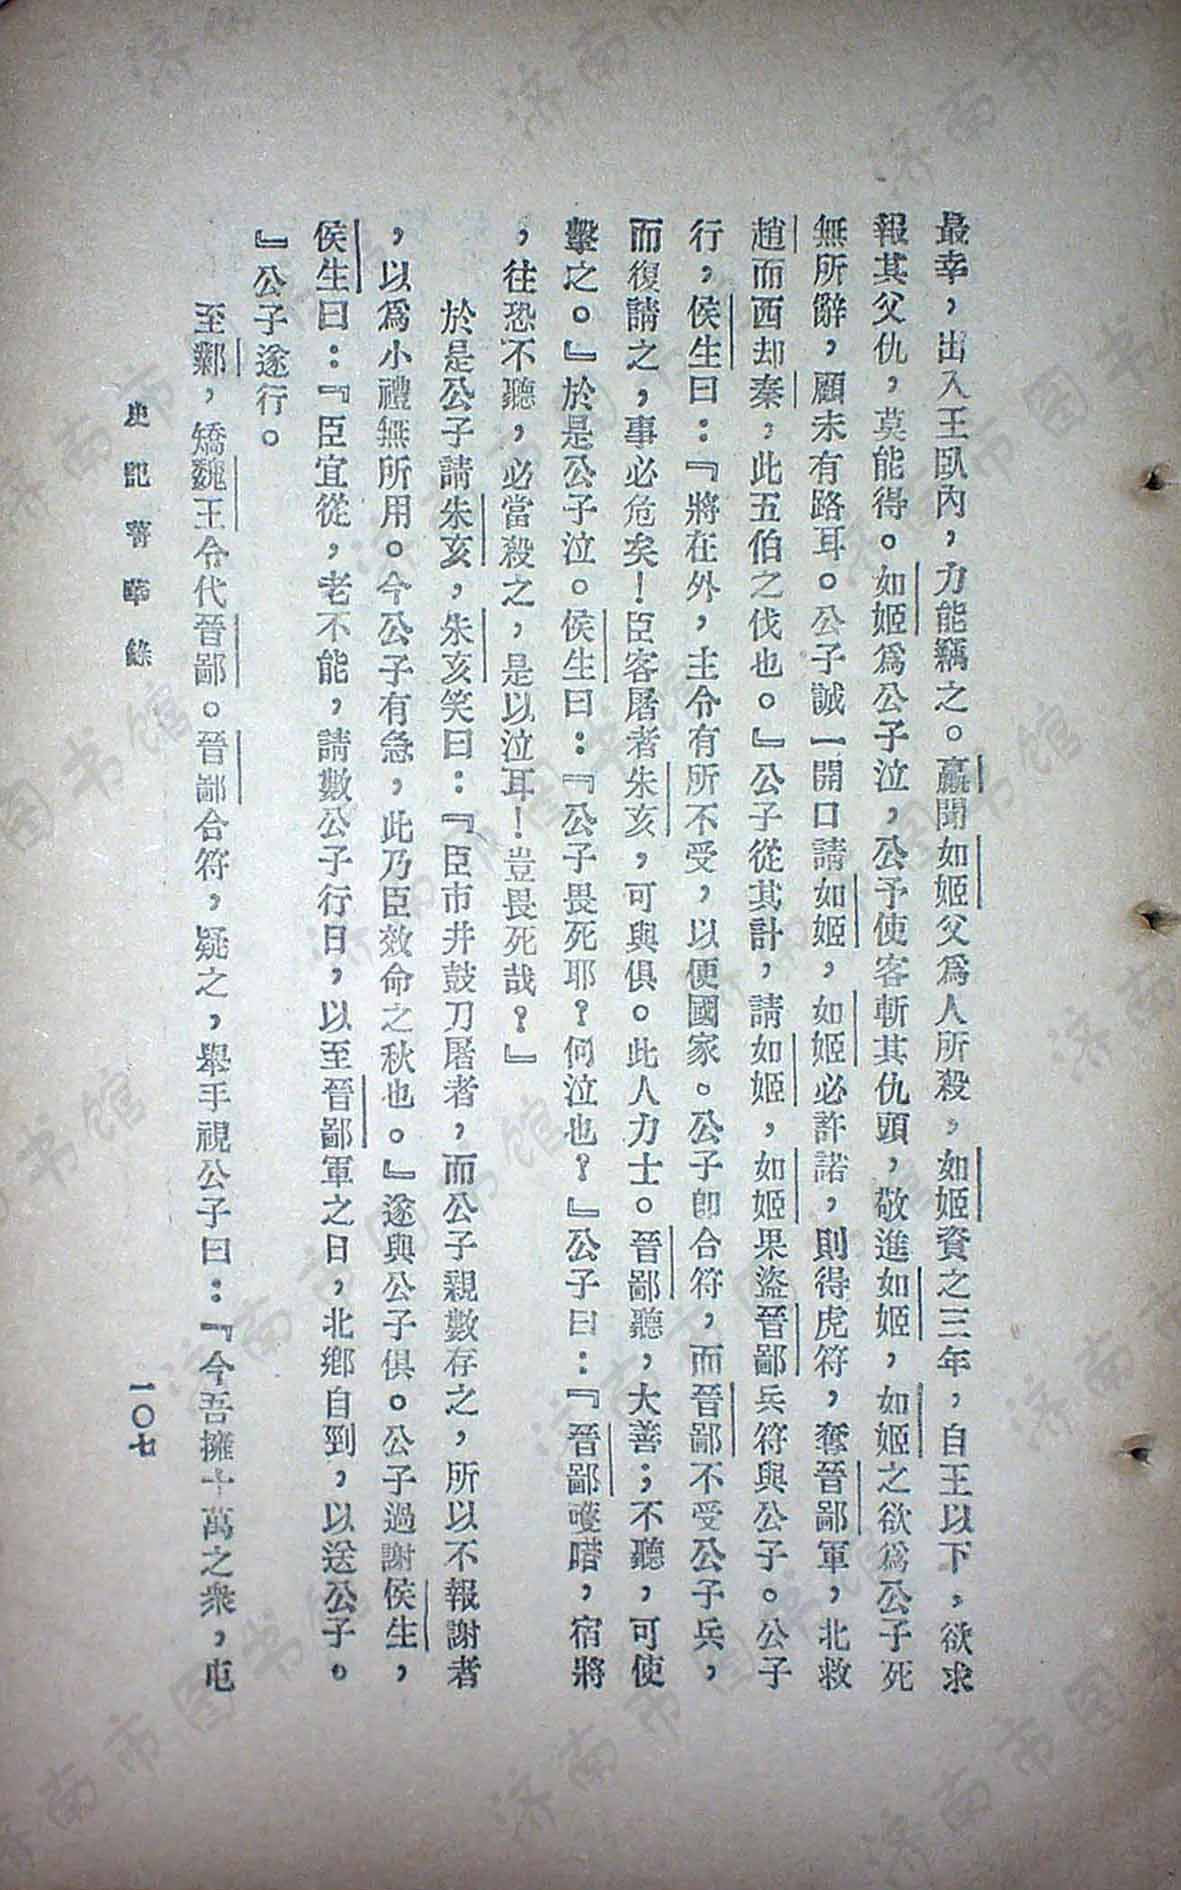 最幸，出入王臥內，力能竊之。嬴聞如姬父爲人所殺，如姬資之三年，自王以下，欲求
報其父仇，莫能得。如姬爲公子泣，公予使客斬其仇頭，敬進如姬，如姬之欲爲公子死
無所辭，顧未有路耳。公子誠一開口請如姬，如姬必許諾，則得虎符，奪晉鄙軍，北救
趙而西却秦，此五伯之伐也。』公子從其計，請如姬，如姬果盜晉鄙兵符與公子。公子
行，侯生曰：『將在外，主令有所不受，以便國家。公子卽合符，而晉鄙不受公子兵，
而復請之，事必危矣！臣客屠者朱亥，可與俱。此人力士。晉鄙聽，大善；不聽，可使
擊之。』於是公子泣。侯生曰：『公子畏死耶？何泣也？』公子曰：『晉鄙嚄唶，宿將
，往恐不聽，必當殺之，是以泣耳！豈畏死哉？』
於是公子請朱亥，朱亥笑曰：『臣市井鼓刀屠者，而公子親數存之，所以不報謝者
，以爲小禮無所用。今公子有急，此乃臣效命之秋也。』遂與公子俱。公子過謝侯生，
侯生曰：『臣宜從，老不能，請數公子行日，以至晉鄙軍之日，北鄉自剄，以送公子。
』公子遂行。
至鄴，矯魏王令代晉鄙。晉鄙合符，疑之，舉手視公子曰：『今吾擁十萬之衆，屯
史記菁華錄
一〇七
济南市图书馆